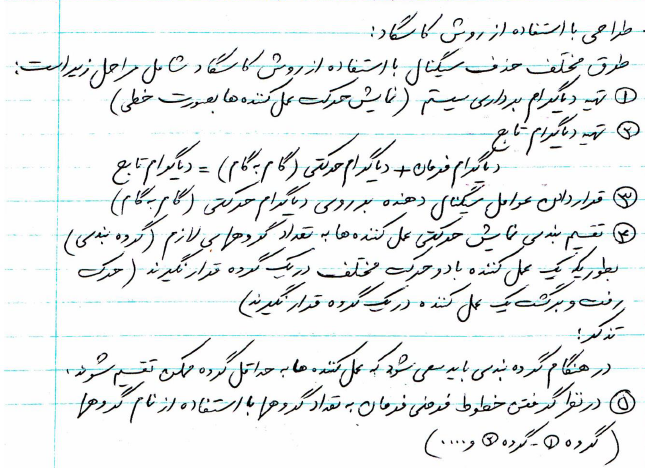 طراحی با استفاده از روش کاسکاد:
طرق مختلف حذف سیگنال با استفاده از روش کاسکاد شامل مراحل زیر است:
① تهیه دیاگرام برداری سیستم (نمایش حرکت عمل کننده ها بصورت خطی)
② تهیه دیاگرام تابع
دیاگرام فرمان + دیاگرام حرکتی (گام به گام) = دیاگرام تابع
③ قرار دادن عوامل سیگنال دهنده بر روی دیاگرام حرکتی (گام به گام)
④ تقسیم بندی نمایش حرکتی عمل کننده ها به تعداد گروههای لازم (گروه بندی)
بطوریکه یک عمل کننده با دو حرکت مختلف در یک گروه قرار نگیرند (حرکت
رفت و برگشت یک عمل کننده در یک گروه قرار نگیرند)
تذکر:
در هنگام گروه بندی باید سعی شود که عمل کننده ها به حداقل گروه ممکن تقسیم شوند.
⑤ در نظر گرفتن خطوط فرضی فرمان به تعداد گروهها با استفاده از نام گروهها
(گروه ① - گروه ② و ....)